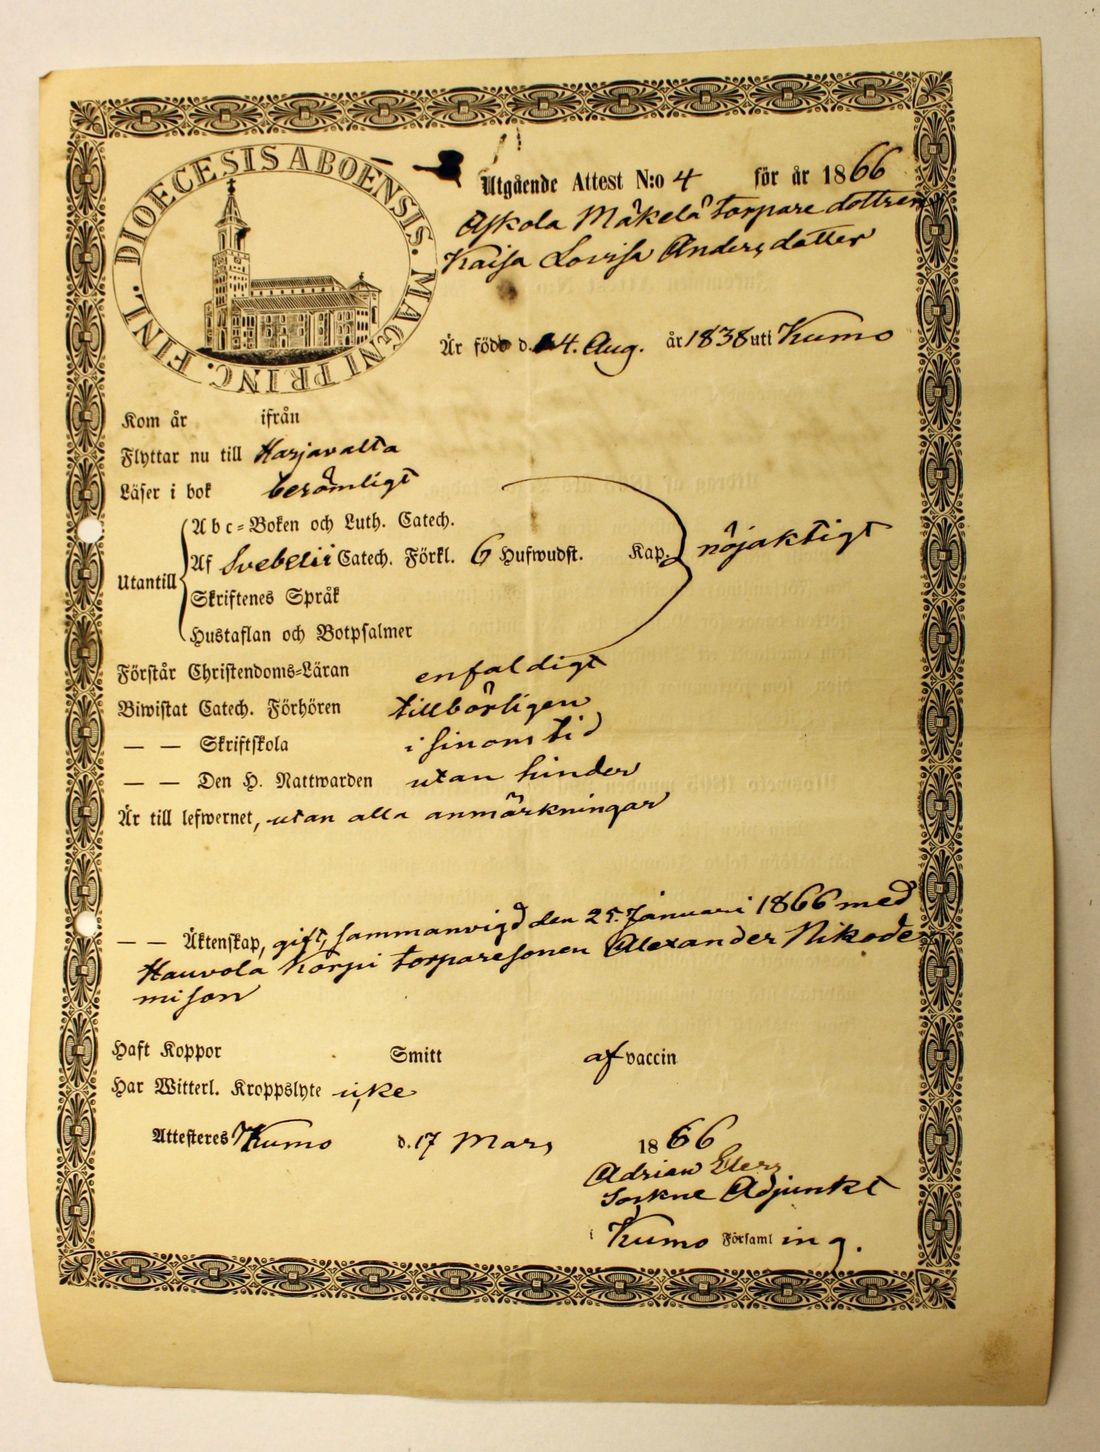 DIOECESIS ABOËNSIS. MAGNI PRINC. FINL.
Utgående Attest N:o 4 för år 1866
Askola Mäkelä torpare dottren
Kaisa Lovisa Anders dotter
Är född d. 4. Aug. år 1838 uti Kumo
Kom år ifrån
Flyttar nu till Harjavalta
Läser i bok berömligt
Abc-Boken och Luth. Catech.
Af Svebelii Catech. Förkl. 6 Hufwudst. Kap. nöjaktigt
Utantill
Skriftenes Språk
Hustaflan och Botpsalmer
Förstår Christendoms-Läran enfaldigt
Biwistat Catech. Förhören tillbörligen
— — Skriftskola i sinom tid
— — Den H. Nattwarden utan hinder
Är till lefwernet, utan alla anmärkningar
— — Äktenskap, gift, sammanvigd den 25. Januari 1866 med
Hauvola Körpi torparesonen Alexander Nikode
mison
Haft Koppor Smitt af vaccin
Har Witterl. Kroppslyte icke
Attesteres Kumo d. 17 Mars 1866
Adrian
Sockne Adjunkt
i Kumo Församling.